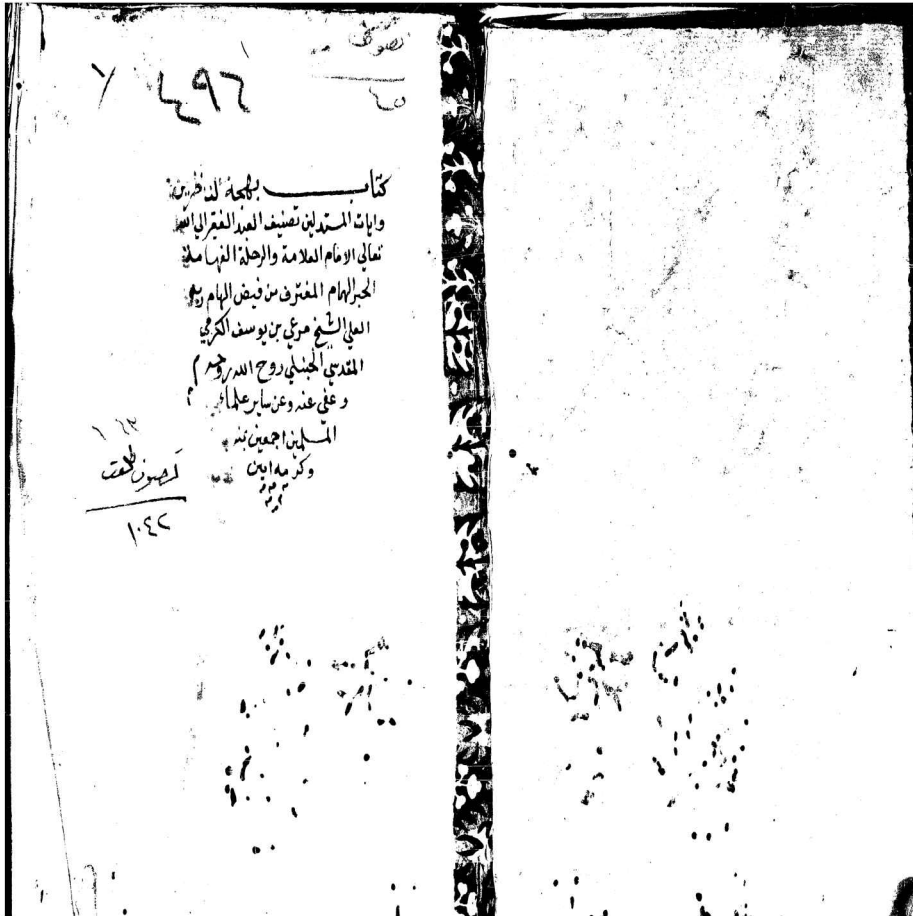 تصوف
٤٥
٤٩٦
كتاب بهجة الناظرين
وايات المستدلين تصنيف العبد الفقير الي الله
تعالي الامام العلامة والرحلة الفهامة
الحبر الهمام المغترف من فيض الهام ربه
العلي الشيخ مرعي بن يوسف الكرمي
المقدسي الحنبلي روح الله روحه
وعفي عنه وعن ساير علماء
المسلمين اجمعين بمنه
وكرمه امين
تصوف طلعت
١٠٤٢